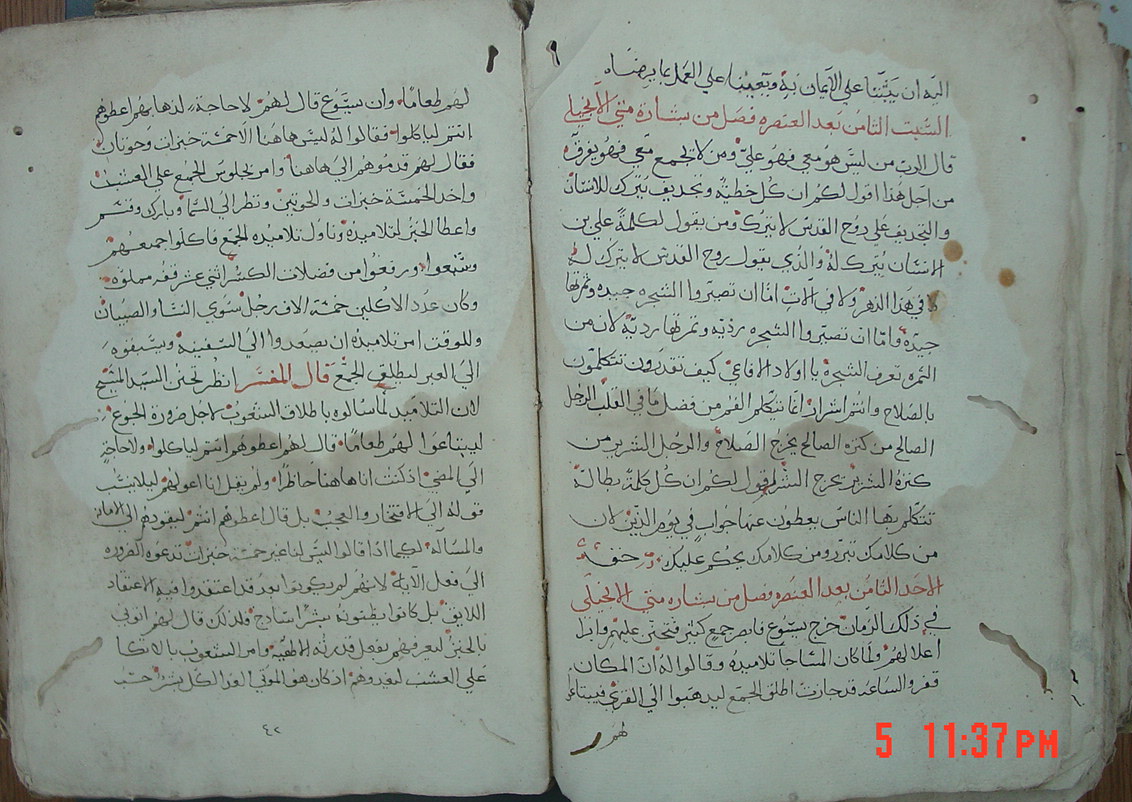 اليه ان يثبتنا علي الايمان به ويعيننا علي العمل بما يرضاه
السبت الثامن بعد العنصره فصل من بشاره متي الانجيلي
قال الرب من ليس هو معي فهو عليّ ومن لا يجمع معي فهو يفرق
من اجل هذا اقول لكم ان كل خطية وتجديف يترك للناس
والتجديف علي روح القدس لا يترك ومن يقول كلمة علي بن
الانسان يترك له والذي يقول روح القدس لا يترك له
لا في هذا الدهر ولا في الات اما ان تصيروا الشجره جيده وثمرتها
جيدة واما ان تصيروا الشجره رديّه وثمرتها رديّة لان من
الثمره تعرف الشجرة يا اولاد الافاعي كيف تقدرون تتكلمون
بالصلاح وانتم اشرار انما يتكلم الفم من فضل ما في القلب الرجل
الصالح من كنزه الصالح يخرج الصلاح والرجل الشرير من
كنزه الشرير يخرج الشر اقول لكم ان كل كلمة بطالة
تتكلم بها الناس يعطون عنها جواب في يوم الدين لان
من كلامك تتبرر ومن كلامك يحكم عليك
الاحد الثامن بعد العنصره فصل من بشاره متي الانجيلي
في ذلك الزمان خرج يسوع فابصر جمع كثير فتحنن عليهم وابرا
اعلالهم ولما كان المسا جا تلاميذه وقالوا له ان المكان
قفر والساعه قد جازت اطلق الجمع ليذهبوا الي القري فيبتاعوا
لهم
لهم طعامًا وان يسوع قال لهم لا حاجة لذهابهم اعطوهم
انتم لياكلوا فقالوا له ليس هاهنا الا خمسة خبزات وحوتان
فقال لهم قدموهم الي هاهنا وامر بجلوس الجمع علي العشب
واخد الخمسة خبزات والحوتين ونظر الي السما وبارك وقسم
واعطا الخبز لتلاميذه وناول تلاميذه الجمع فاكلوا جميعهم
وشبعوا ورفعوا من فضلات الكسر اثني عشر قفه مملوه
وكان عدد الاكلين خمسة الاف رجل سوي النسا والصبيان
وللوقت امر تلاميذه ان يصعدوا الي السفينه ويسبقوه
الي العبر ليطلق الجمع قال المفسر انظر تحنن السيد المسيح
لان التلاميد لما سالوه باطلاق الشعوب لاجل ضرورة الجوع
ليبتاعوا لهم طعامًا قال لهم اعطوهم انتم لياكلوا ولا حاجة
الي المضي اذ كنت انا هاهنا حاظرًا ولم يقل انا اعولهم ليلا ينسب
قوله الي الافتخار والعجب بل قال اعطوهم انتم ليقودهم الي الامانه
والمساله لكيما اذا قالوا ليس لنا غير خمسة خبزات تدعوه الضروره
الي فعل الآية لانهم لم يكونوا بعد قد اعتقدوا فيه الاعتقاد
اللايق بل كانوا يظنونه بشرًا سادج ولذلك قال لهم اتوني
بالخبز ليعرفهم بفعل قدرته الالهيه وامر الشعوب بالاتكا
علي العشب ليفيدهم اذ كان هو الموتي لغدا لكل بشر حسب
٤٢
5 11:37 PM